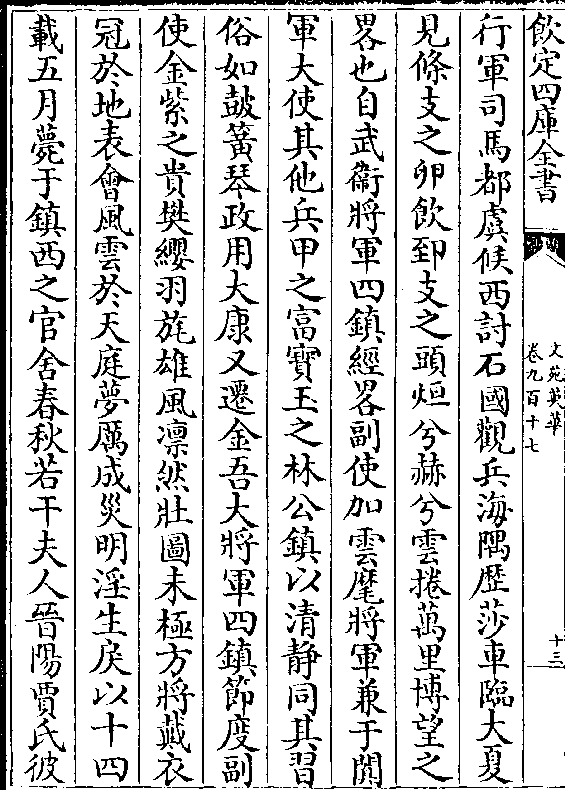 欽定四庫全書
文苑英華
卷九百十七
十三
行軍司馬都虞候西討石國觀兵海隅歴莎車臨大夏
見條支之卵飲郅支之頭烜兮赫兮雲捲萬里博望之
畧也自武衛將軍四鎮經畧副使加雲麾將軍兼于闐
軍大使其他兵甲之富寳玉之林公鎮以清静同其習
俗如皷簧琴政用大康又遷金吾大將軍四鎮節度副
使金紫之貴樊纓羽旄雄風凛然壯圖未極方將蕆衣
冠於地表會風雲於天庭夢厲成災明淫生戾以十四
載五月薨于鎮西之官舍春秋若干夫人晉陽賈氏彼